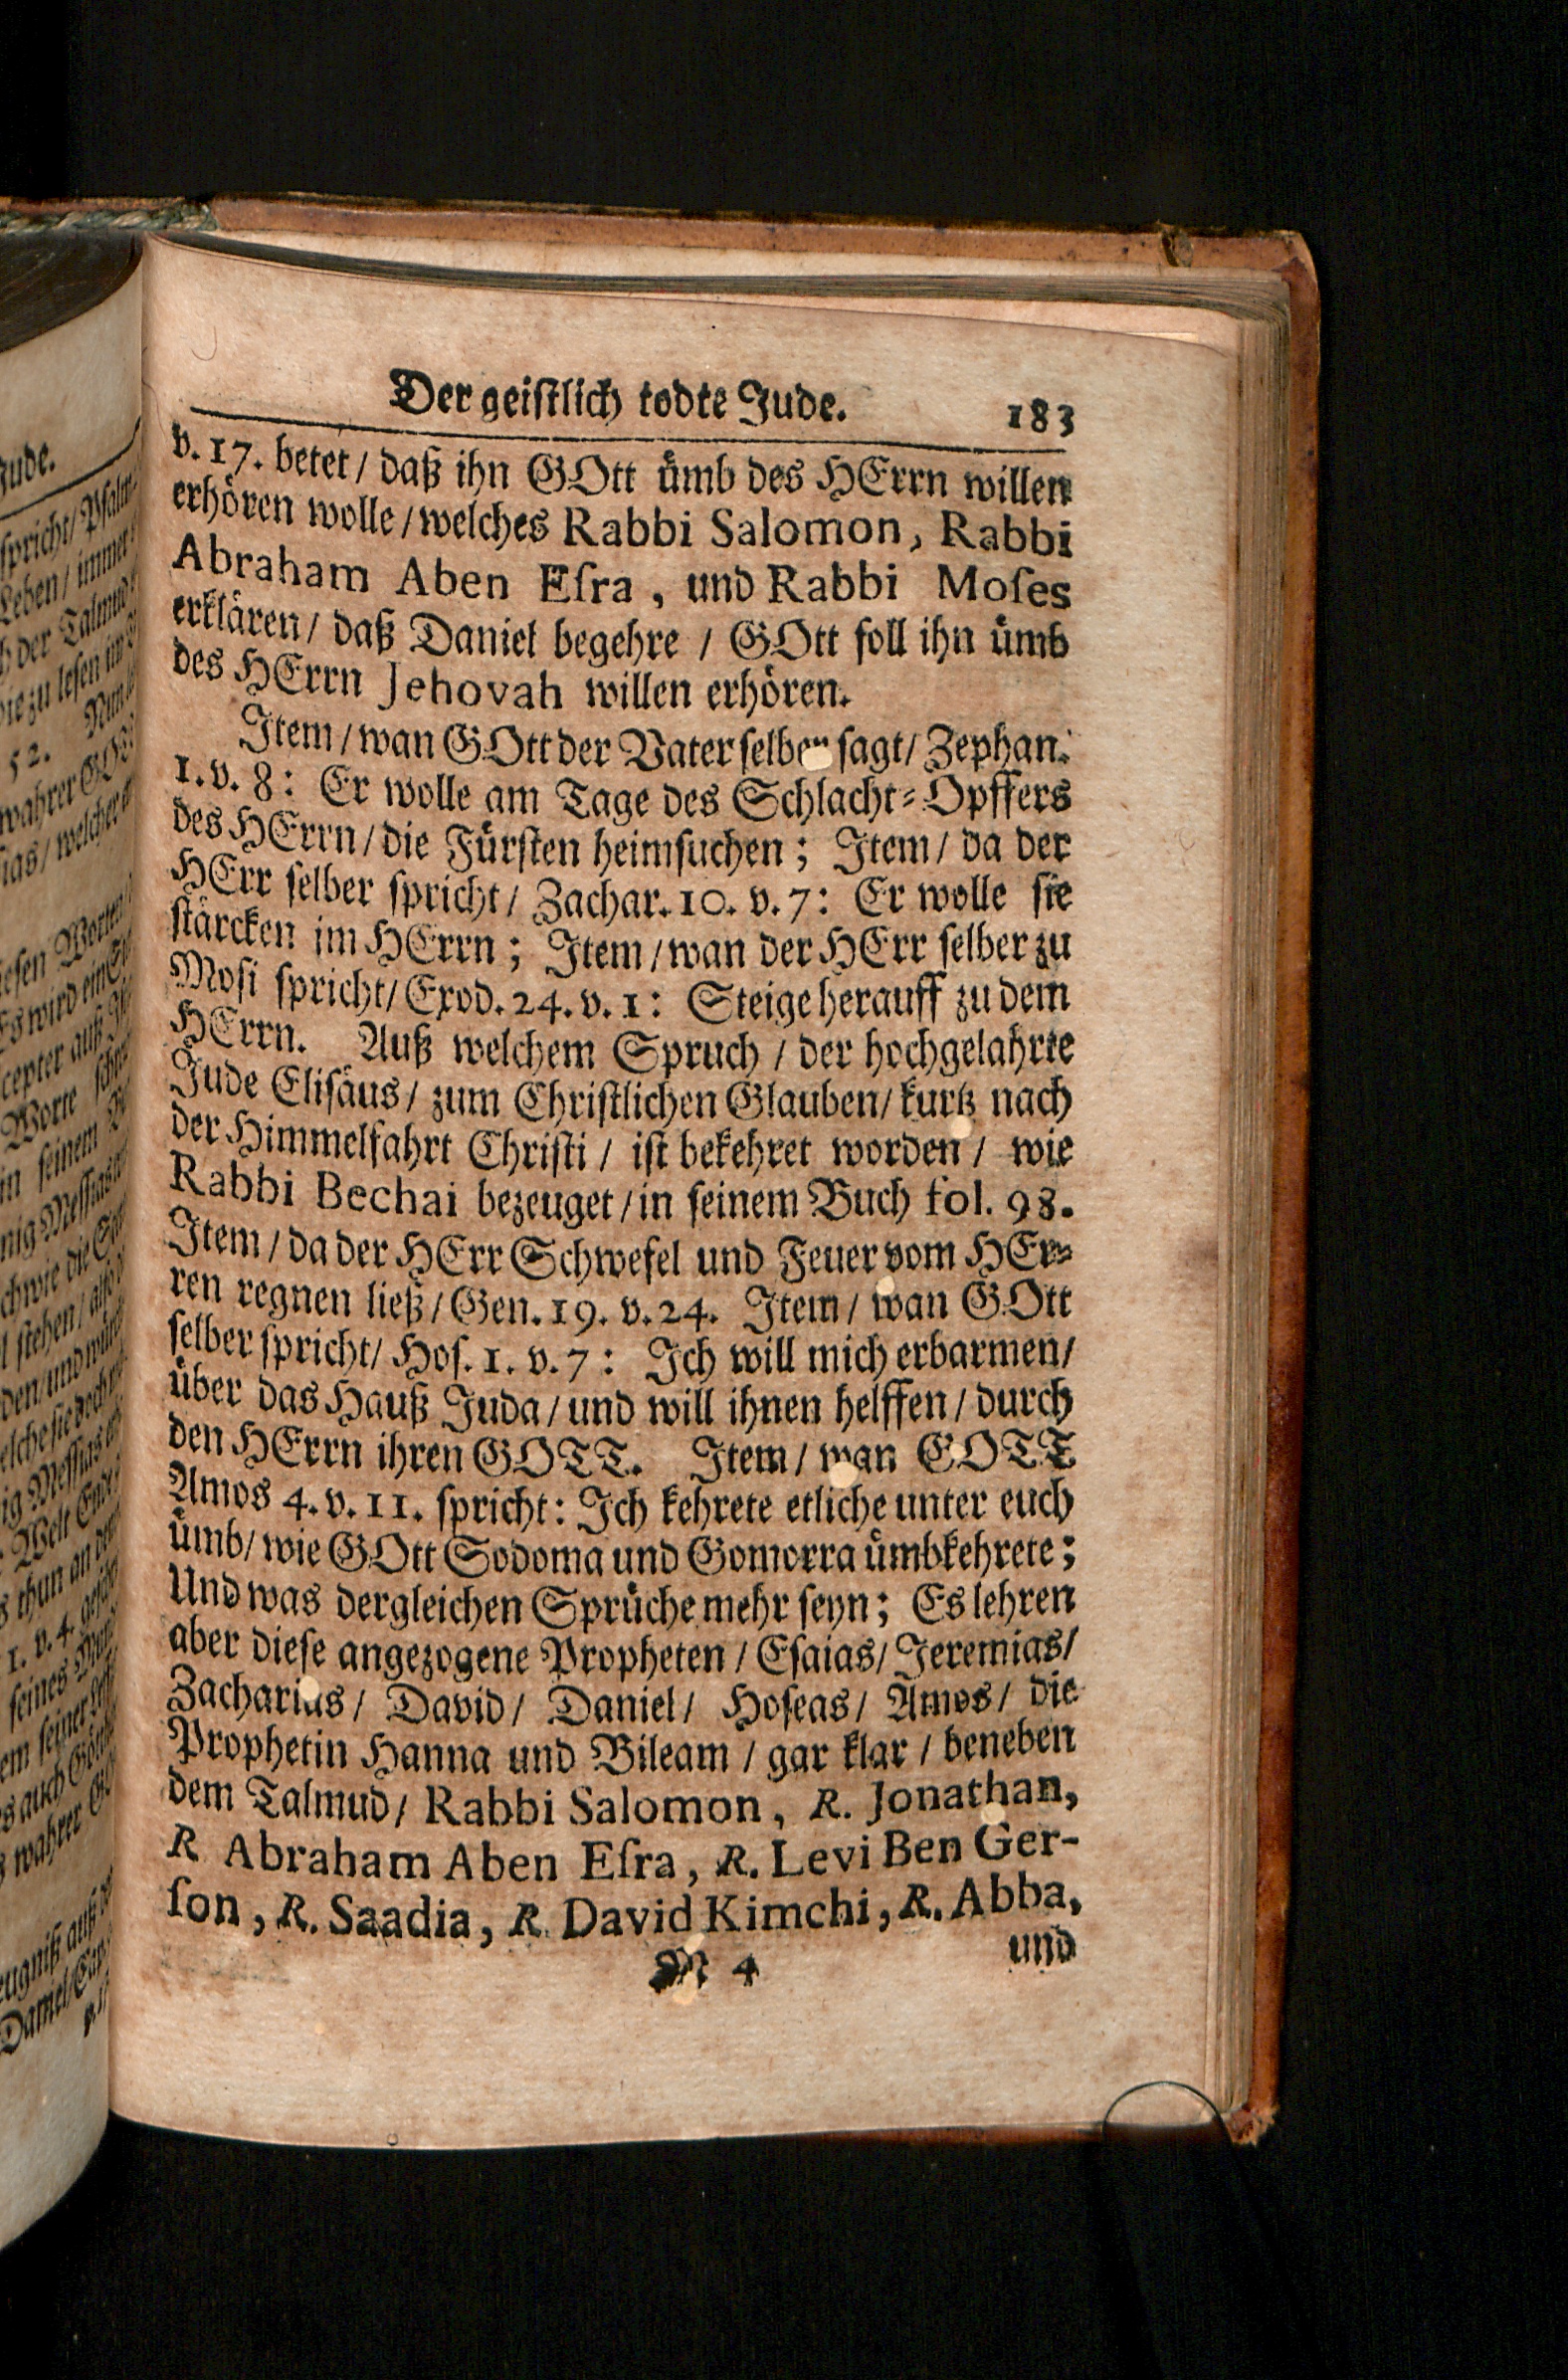 Der geiſtlich todte Jude. 183
v. 17. betet / daß ihn GOtt uͤmb des HErrn willen
erhoͤren wolle / welches Rabbi Salomon, Rabbi
Abraham Aben Eſra, und Rabbi Moſes
erklaͤren / daß Daniel begehre / GOtt ſoll ihn uͤmb
des HErrn Jehovah willen erhoͤren.
Item / wan GOtt der Vater ſelber ſagt / Zephan.
1. v. 8: Er wolle am Tage des Schlacht⸗Opffers
des HErrn / die Fuͤrſten heimſuchen; Item / da der
HErr ſelber ſpricht / Zachar. 10. v. 7: Er wolle ſie
ſtaͤrcken im HErrn; Item / wan der HErr ſelber zu
Moſi ſpricht / Exod. 24. v. 1: Steige herauff zu dem
HErrn. Auß welchem Spruch / der hochgelahrte
Jude Eliſaͤus / zum Chriſtlichen Glauben / kurtz nach
der Himmelfahrt Chriſti / iſt bekehret worden / wie
Rabbi Bechai bezeuget / in ſeinem Buch fol. 98.
Item / da der HErr Schwefel und Feuer vom HEr⸗
ren regnen ließ / Gen. 19. v. 24. Item / wan GOtt
ſelber ſpricht / Hoſ. 1. v. 7: Ich will mich erbarmen /
uͤber das Hauß Juda / und will ihnen helffen / durch
den HErrn ihren GOTT. Item / wan GOTT
Amos 4. v. 11. ſpricht: Ich kehrete etliche unter euch
uͤmb / wie GOtt Sodoma und Gomorra uͤmbkehrete;
Und was dergleichen Spruͤche mehr ſeyn; Es lehren
aber dieſe angezogene Propheten / Eſaias / Jeremias /
Zacharias / David / Daniel / Hoſeas / Amos / die
Prophetin Hanna und Bileam / gar klar / beneben
dem Talmud / Rabbi Salomon, R. Jonathan,
R Abraham Aben Eſra, R. Levi Ben Ger-
ſon, R. Saadia, R. David Kimchi, R. Abba,
M 4 und